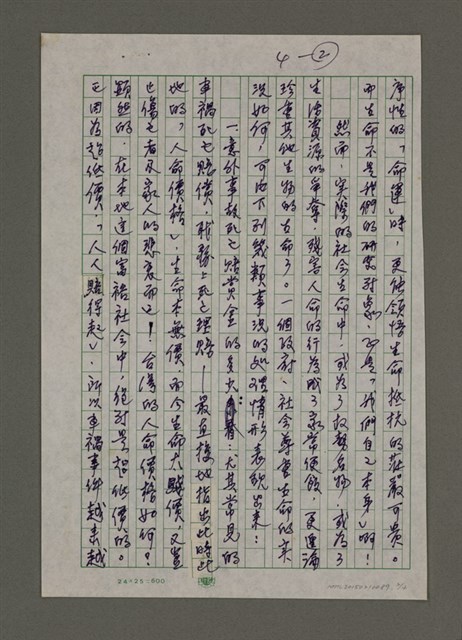 4-②
序性的「命運」時，更能領悟生命抵抗的莊嚴可貴。
而生命不是我們的研究對象，而是「我們自己本身」啊！
然而，實際的社會生命中，或為了
生活資源的爭奪，殘害人命的行為成了家常便飯，更遑論
珍重其他生物的生命了。一個政府、社會尊重生命的实
況如何，可由下列幾類事況的處理情形表現出來：
一、意外事故死亡賠償金的多少：尤其常見的
車禍死亡賠償，職務上死亡理賠——最直接地指出此時此
地的「人命價格」，生命本無價，而今生命太賤價，又豈
止傷亡者及家人的悲哀而已！台灣的人命價格如何？
顯然的，在本地這個富裕社會中，絕對是超低價的。
正因為超低價，「人人賠得起」，所以車禍事件越來越
24×25=600